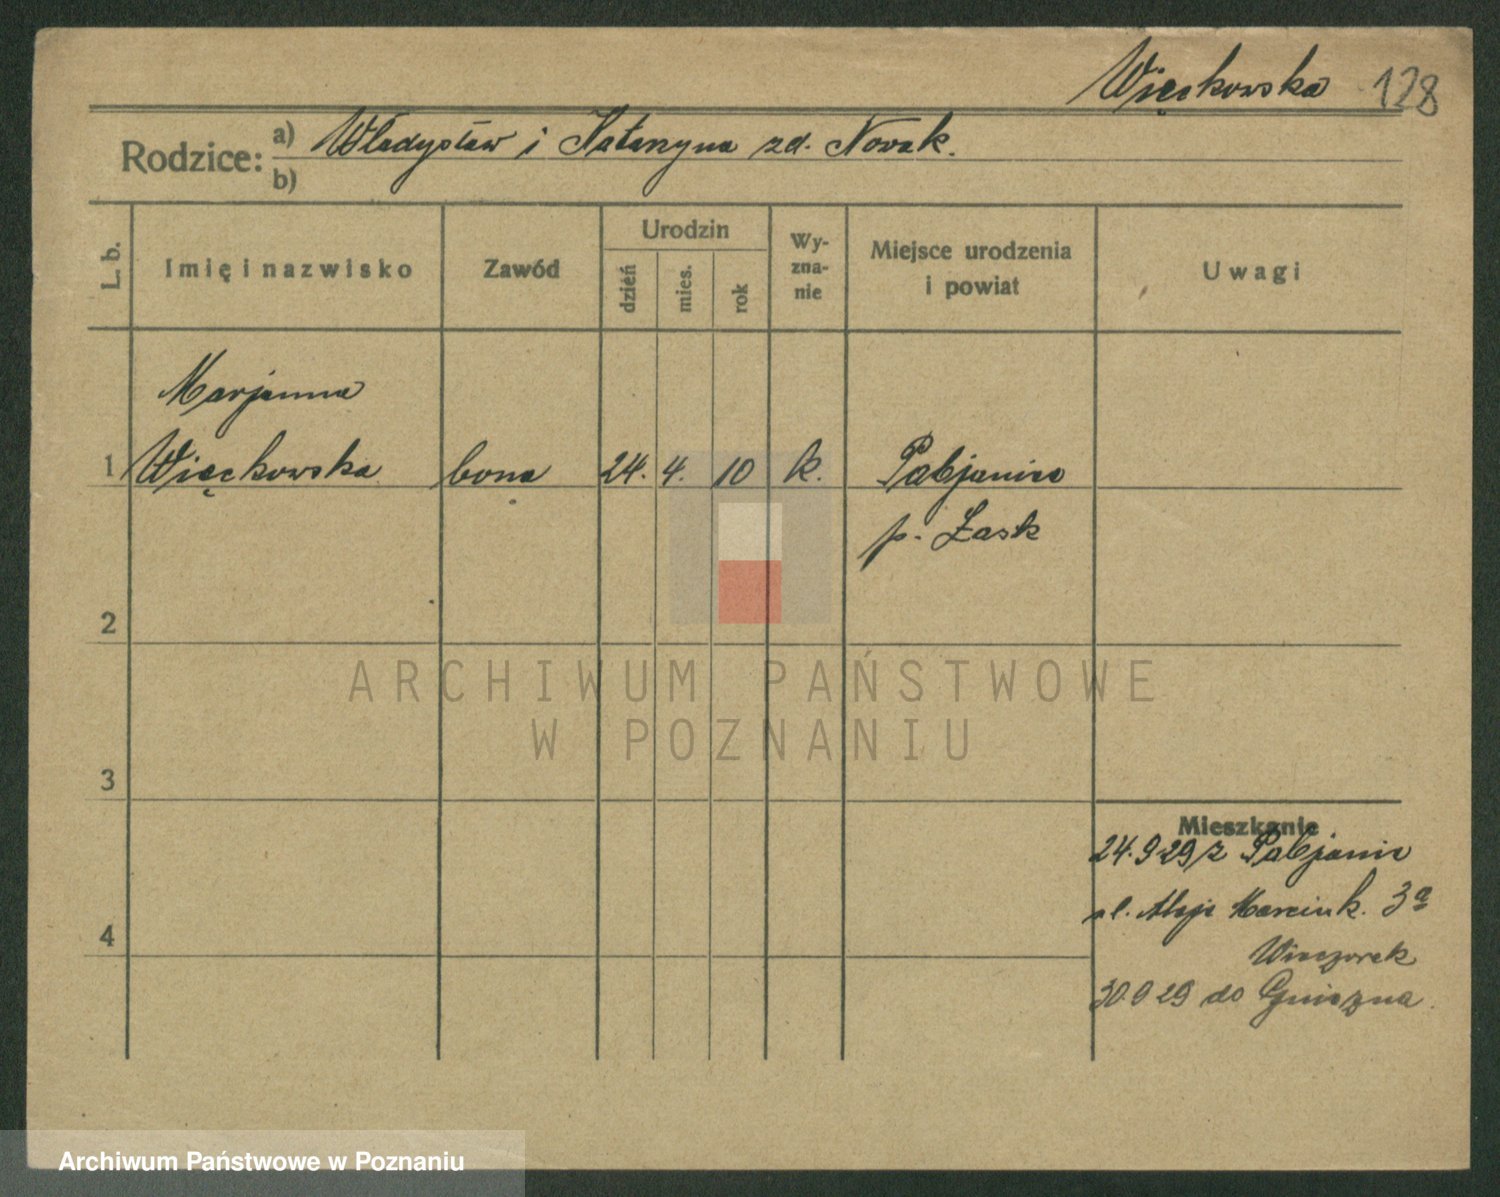 Więckowska 128
Rodzice: a) Władysław i Katarzyna zd. Nowak.
b)
L. b.
Imię i nazwisko
Zawód
Urodzin
dzień
mies.
rok
Wy-
zna-
nie
Miejsce urodzenia
i powiat
Uwagi
Marjanna
1 Więckowska bona 24. 4. 10 k. Pabjanice
p. Łask
2
ARCHIWUM PAŃSTWOWE
W POZNANIU
3
Mieszkanie
24.9 29 z Pabjanic
ul. Marcink. 3a
4
Wieczorek
30 9 29 do Gniezna.
Archiwum Państwowe w Poznaniu